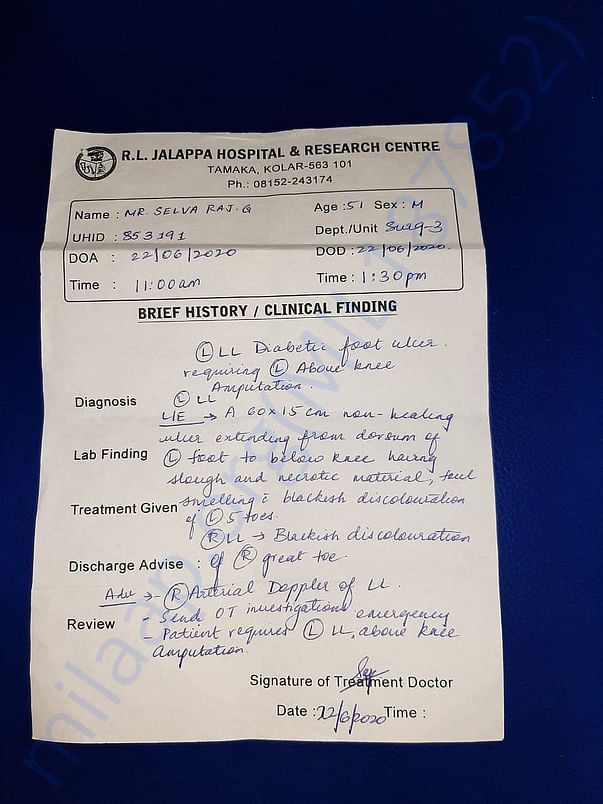 R.L. JALAPPA HOSPITAL & RESEARCH CENTRE
TAMAKA, KOLAR-563 101
Ph.: 08152-243174
Name : MR. SELVA RAJ. G Age : 51 Sex : M
UHID : 853191 Dept./Unit Surg-3
DOA : 22/06/2020 DOD : 22/06/2020.
Time : 11:00am Time : 1:30pm
BRIEF HISTORY / CLINICAL FINDING
(L) LL Diabetic foot ulcer.
requiring (L) Above knee
Amputation.
Diagnosis (L) LL
L/E → A 60x15 cm non-healing
ulcer extending from dorsum of
Lab Finding (L) foot to below knee having
slough and necrotic material, foul
Treatment Given smelling c̄ blackish discolouration
of (L) 5 toes.
(R) LL → Blackish discolouration
Discharge Advise : of (R) great toe.
Adv → - (R) Arterial Doppler of LL.
Review - Send OT investigations emergency
- Patient requires (L) LL, above knee
Amputation.
Signature of Treatment Doctor
Date : 22/6/2020 Time :
milaap.org(MIL1187852)